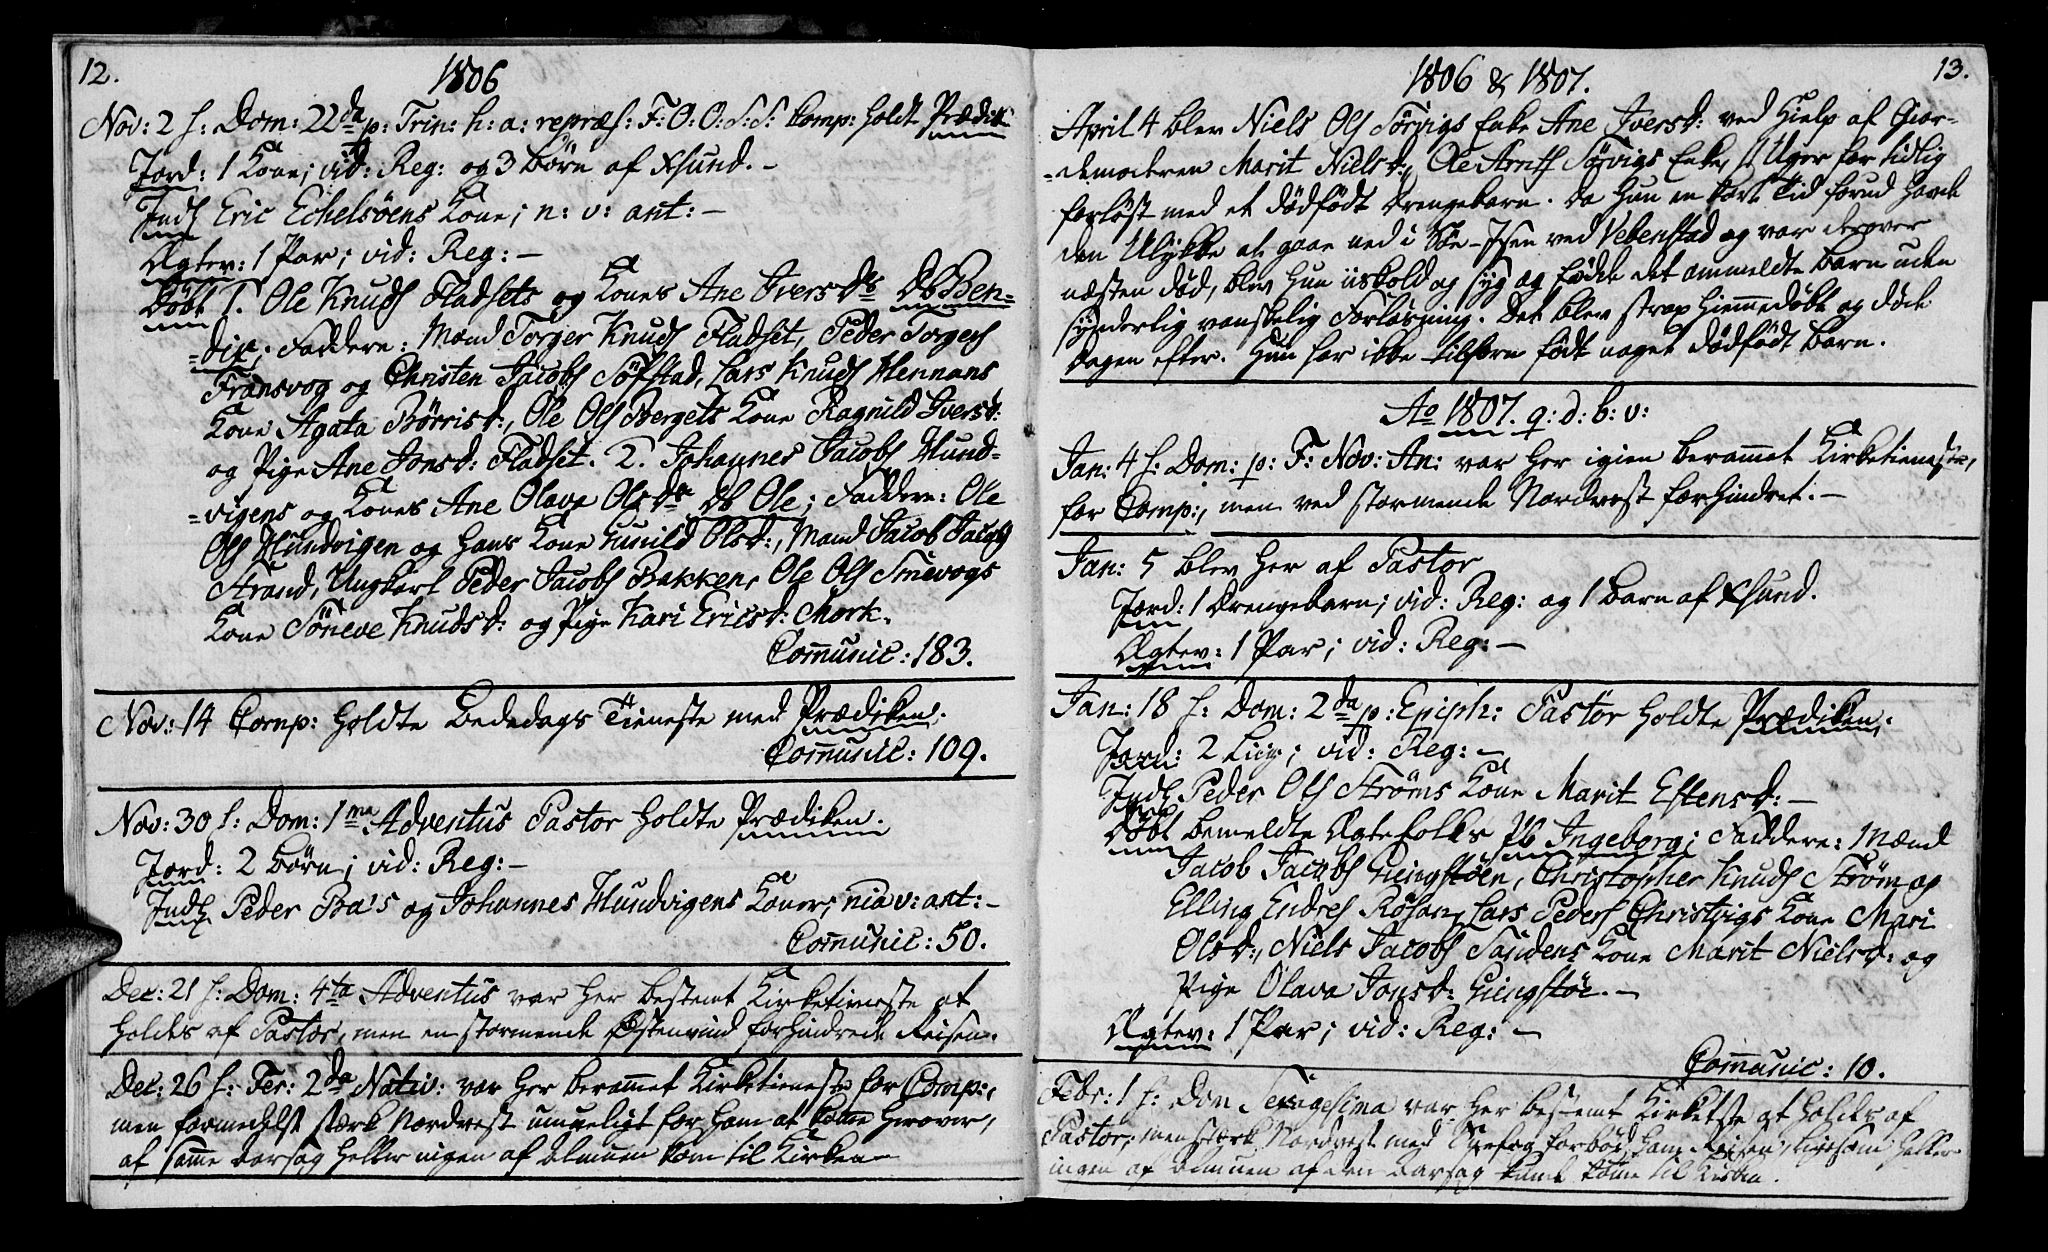 12.
1806
Nov: 2 s: Dom: 22da p: Trin: h: a: repræs: F: O: O: S: S: Comp: holdt Prædik:
Jord: 1 Kone; vid: Reg: og 3 Børn af Xsund. –
Indl Eric Eckelsöens Kone; n: v: ant: –
Ægtev: 1 Par; vid: Reg: –
Döbt 1. Ole Knuds Fladsets og Kones Ane Ivers Dr Db Ben=
=dix; Faddere: Mænd Torger Knuds Fladset, Peder Torgers
Fransvog og Christen Jacobs Söfstad, Lars Knuds Hennans
Kone Agata Börrisd:, Ole Ols Bergets Kone Ragnild Iversd:
og Pige Ane Jonsd: Fladset. 2. Johannes Jacobs Hund-
=vigens og Kones Ane Olava Ols Dr Db Ole; Faddere: Ole
Ols Hundvigen og hans Kone Gunild Olsd:, Mand Jacob Jacobs
Strand, Ungkarl Peder Jacobs Bakken, Ole Ols Smevogs
Kone Söneve Knudsd: og Pige Kari Ericsd: Mork.
Com̄unic: 183.
Nov: 14 Comp: holdte Bededags Tieneste med Prædiken.
Com̄unic: 109.
Nov: 30 s: Dom: 1ma Adventus Pastor holdte Prædiken.
Jord: 2 Börn; vid: Reg: –
Indl Peder Ba's og Johannes Hundvigens Koner; n: v: ant: –
Com̄unic: 50.
Dec: 21 s: Dom: 4ta Adventus var her bestemt Kirketieneste at
holdes af Pastor, men en stormende Østenvind forhindrede Reisen.
Dec: 26 s: Fer: 2da Nativ: var her beram̄et Kirketieneste for Comp:,
men formedelst stærk Nordvest umueligt for ham at kom̄e herover,
af sam̄e Aarsag heller ingen af Almuen kom til Kirken –
1806 & 1807.
13.
April 4 blev Niels Ols Sörvigs Enke Ane Iversd: ved Hielp af Gior-
=demoderen Marit Nielsd:, Ole Arnts Sörvigs Enke, Uger for tidlig
forløst med et dødfödt Drengebarn. Da hun en kort Tid forud havde
den Ulykke at gaae ned i Söe-Isen ved Vebenstad og var derover
næsten död, blev hun iiskold og syg og födte det anmeldte Barn uden
synderlig vanskelig Forløsning. Det blev strax hiemmedöbt og döde
Dagen efter. Hun har ikke tilforn födt noget dödfödt Barn.
Ao 1807. q: d: b: v:
Jan: 4 s: Dom: p: F: Nov: An: var her igien beram̄et Kirketieneste,
for Comp:, men ved stormende Nordvest forhindret. –
Jan: 5 blev her af Pastor
Jord: 1 Drengebarn; vid: Reg: og 1 Barn af Xsund.
Ægtev: 1 Par; vid: Reg: –
Jan: 18 s: Dom: 2da p: Epiph: Pastor holdte Prædiken.
Jord: 2 Liig; vid: Reg: –
Indl Peder Ols Ströms Kone Marit Estensd: –
Döbt bemeldte Ægtefolks Pb Ingeborg; Faddere: Mænd
Jacob Jacobs Güngstöen, Christopher Knuds Ström og
Elling Endres Rösand, Lars Peders Christvigs Kone Mari
Olsd:, Niels Jacobs Sandens Kone Marit Nielsd: og
Pige Olava Jonsd: Güngstöe. –
Ægtev: 1 Par; vid: Reg: –
Com̄unic: 10.
Febr: 1 s: Dom Sexagesima var her bestemt Kirketste at holdes af
Pastor, men stærk Nordvest med Snefog forbød ham Reisen; ligesom heller
ingen af Almuen af den Aarsag kunde kom̄e til Kirken.